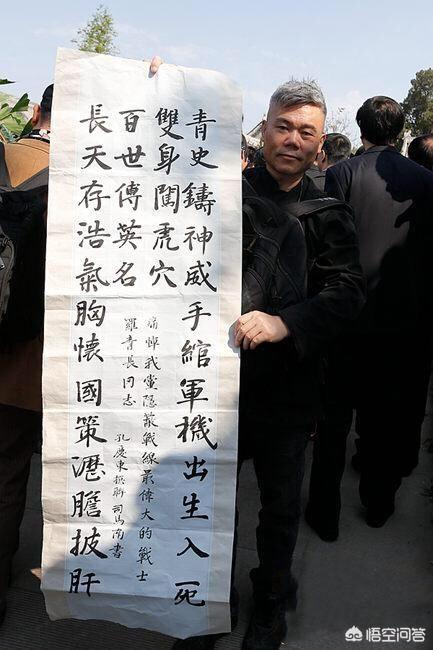 青史鑄神威手綰軍機出生入死
雙身闖虎穴
百世傳英名
痛悼我黨隱蔽戰線最偉大的戰士
羅青長同志
孔慶東撰聯 司馬南書
長天存浩氣胸懷國策瀝膽披肝
悟空问答